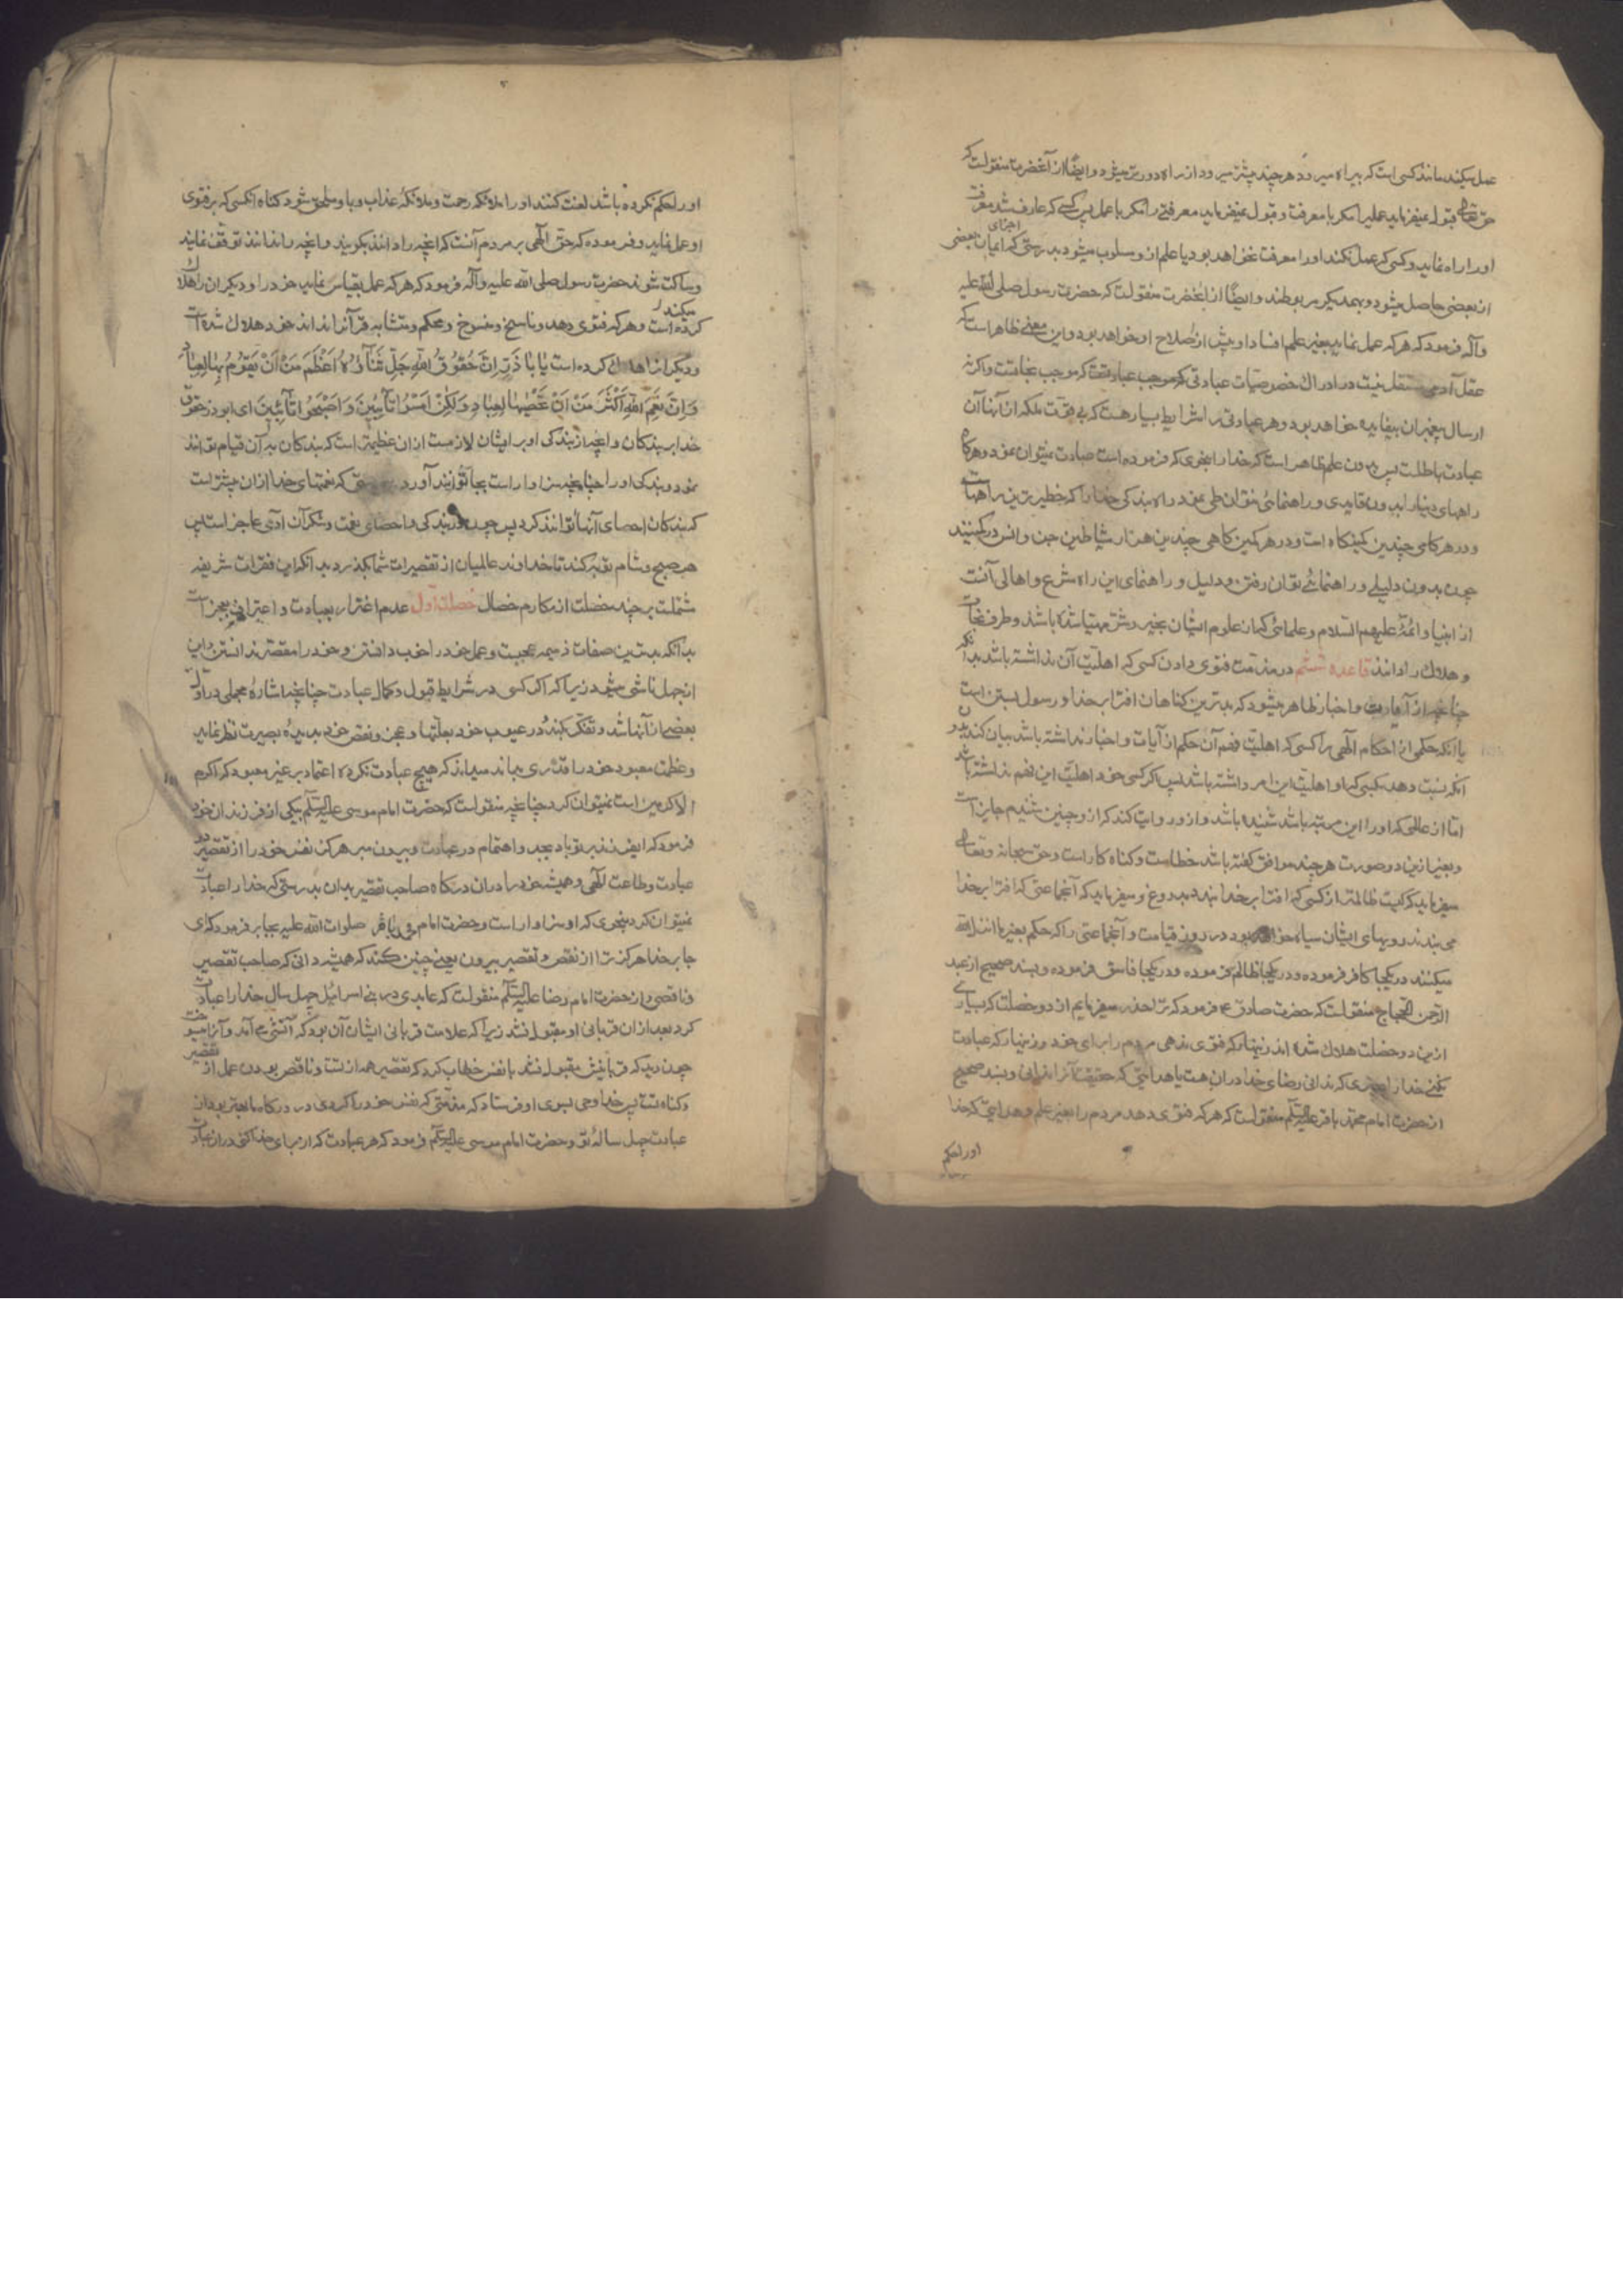 عمل میکند مانند کسی است که بیراه میرود هر چند بیشتر میرود از راه دورتر میشود و ایضا از آنحضرت منقولست که
حق تعالی قبول نمیفرماید عملیرا مگر با معرفت و قبول نمیفرماید معرفتی را مگر با عمل پس کسی که عارف شد معرفت
او را راه نماید و کسی که عمل نکند او را معرفت نخواهد بود یا علم از و مسلوب میشود بدرستی که اجزای ایمان بعضی
از بعضی حاصل میشود و بهمدیگر مربوطند و ایضًا از آنحضرت منقولست که حضرت رسول صلی الله علیه
و آله فرمود که هر که عمل نماید بغیر علم افساد او بیش از صلاح او خواهد بود و این معنی ظاهر است که
عقل آدمی مستقل نیست در ادراک خصوصیات عبادتی که موجب نجاتست و اگر نه
ارسال پیغمبران بیفایده خواهد بود و هر عبادتی را شرایط بسیار هست که بی‌فوت ملکه از آنها آن
عبادت باطلست پس بدون علم ظاهر است که خدا را بنحوی که فرموده است عبادت نمیتوان نمود و هر گاه
راههای دنیا را بدون قایدی و راهنمائی نتوان طی نمود راه بندگی خدا را که خطیرترین راههاست
و در هر گامی چندین کمینگاه است و در هر کمین گاهی چندین هزار شیاطین جن و انس در کمینند
چون بدون دلیلی و راهنمائے توان رفتن و دلیل و راهنمای این راه شرع و اهالی آنست
از انبیا و ائمهٔ علیهم السلام و علمائی که از علوم ایشان بخیر و شر مهتدی شده باشند و طرف نجات
و هلاک را دانند قاعده ششم در مذمت فتوی دادن کسی که اهلیت آن نداشته باشد بدانکه
چنانچه از آیات و اخبار ظاهر میشود که بدترین گناهان افترا بر خدا و رسول بستن است
یا آنکه حکمی از احکام الهی را کسی که اهلیت فهم آن حکم از آیات و اخبار نداشته باشد بیان کند بدون
آنکه نسبت دهد بکسی که او اهلیت این امر داشته باشد پس اگر کسی خود اهلیت این فهم نداشته باشد
اما از عالمی که او را این مرتبه باشد شنیده باشد و از و روایت کند که از و چنین شنیدم جایز است
و بغیر از این دو صورت هر چند موافق گفته باشد خطاست و گناه کار است و حق سبحانه و تعالی
میفرماید که کیست ظالمتر از کسی که افترا بر خدا بندد بدروغ و میفرماید که آنجماعتی که افترا بر خدا
می‌بندند رویهای ایشان سیاه خواهد بود در روز قیامت و آنجماعتی را که حکم بغیر ما انزل الله
میکنند در یکجا کافر فرموده و در یکجا ظالم فرموده و در یکجا فاسق فرموده و بسند صحیح از عبد
الرحمن الحجاج منقولست که حضرت صادق ع فرمود که ترا حذر میفرمایم از دو خصلت که بسیاری
از این دو خصلت هلاک شده اند زنهار که فتوی ندهی مردم را برای خود و زنهار که عبادت
نکنی خدا را بچیزی که ندانی رضای خدا در آن هست یا هدایتی که حقیقت آنرا ندانی و بسند صحیح
از حضرت امام محمد باقر علیه السلام منقولست که هر که فتوی دهد مردم را بغیر علم و هدایتی که خدا
او را بحکم
او را بحکم نکرده باشد لعنت کنند او را ملائکه رحمت و ملائکه عذاب و باو ملحق شود گناه آنکسی که بر فتوی
او عمل نماید و فرموده که حق الهی بر مردم آنست که آنچه را دانند بگویند و آنچه را ندانند توقف نمایند
و ساکت شوند حضرت رسول صلی الله علیه و آله فرمود که هر که عمل بقیاس نماید خود را و دیگران را هلاک
میکند و هر که فتوی دهد و ناسخ و منسوخ و محکم و متشابه قرآنرا نداند خود هلاک شده است
و دیگرانرا هلاک کرده است یَا بَا ذَرٍّ اِنَّ حُقُوقَ اللهِ جَلَّ ثَنَاؤُهُ اَعْظَمُ مِنْ اَنْ یَقُومَ بِهَا الْعِبَادُ
وَ اِنَّ نِعَمَ اللهِ اَکْثَرُ مِنْ اَنْ یُحْصِیهَا الْعِبَادُ وَ لٰکِنْ اَمْسُوا تَائِبِینَ وَ اَصْبِحُوا تَائِبِینَ ای ابوذر حقوق
خدا بر بندگان و آنچه از بندگی او بر ایشان لازمست از آن عظیمتر است که بندگان بآن قیام توانند
نمود و بندگی او را چنانچه سزاوار است بجا توانند آورد بدرستی که نعمتهای خدا از آن بیشتر است
که بندگان احصای آنها توانند کرد پس چون از بندگی و احصای نعمت و شکر آن آدمی عاجز است پس
هر صبح و شام توبه کنند تا خداوند عالمیان از تقصیرات شما بگذرد بدانکه این فقرات شریفه
مشتملست بر چند خصلت از مکارم خصال خصلت اول عدم اغترار بعبادت و اعتراف بعجز است
بدانکه بدترین صفات ذمیمه عجبست و عمل خود را خوب دانستن و خود را مقصر ندانستن و این
از جهل ناشی میشود زیرا که اگر کسی در شرایط قبول و کمال عبادت چنانچه اشارهٔ مجملی در اول
بعضی از آنها شد و تفکر بکند در عیوب خود و بعلتها و عجز و نقص خود بدیدهٔ بصیرت نظر نماید
و عظمت معبود خود را قدری بداند میداند که هیچ عبادت نکرده اعتماد بر غیر معبود که اکرم
الاکرمین است نمیتوان کرد چنانچه منقولست که حضرت امام موسی علیه السلام بیکی از فرزندان خود
فرمود که ای فرزند بر تو باد بجد و اهتمام در عبادت و بیرون مبر هرگز نفس خود را از تقصیر در
عبادت و طاعت الهی و همیشه خود را در آن درگاه صاحب تقصیر بدان بدرستی که خدا را عبادت
نمیتوان کرد بنحوی که او سزاوار است و حضرت امام محمد باقر صلوات الله علیه بجابر فرمود که ای
جابر خدا هرگز ترا از نقص و تقصیر بیرون یعنی چنین کند که همیشه دانی که صاحب تقصیر
و ناقصی و از حضرت امام رضا علیه السلام منقولست که عابدی در بنی اسرائیل چهل سال خدا را عبادت
کرد بعد از آن قربانی او مقبول نشد زیرا که علامت قربانی ایشان آن بود که آتشی می‌آمد و آنرا میسوخت
چون دید که قربانیش مقبول نشد با نفس خطاب کرد که تقصیر همه از تست و ناقص بودن عمل از تقصیر
و گناه تست پس خدا وحی بسوی او فرستاد که مذمتی که نفس خود را کردی در درگاه ما بهتر بود از
عبادت چهل سالهٔ تو و حضرت امام موسی علیه السلام فرمود که هر عبادت که از برای خدا کنی در آن عبادت